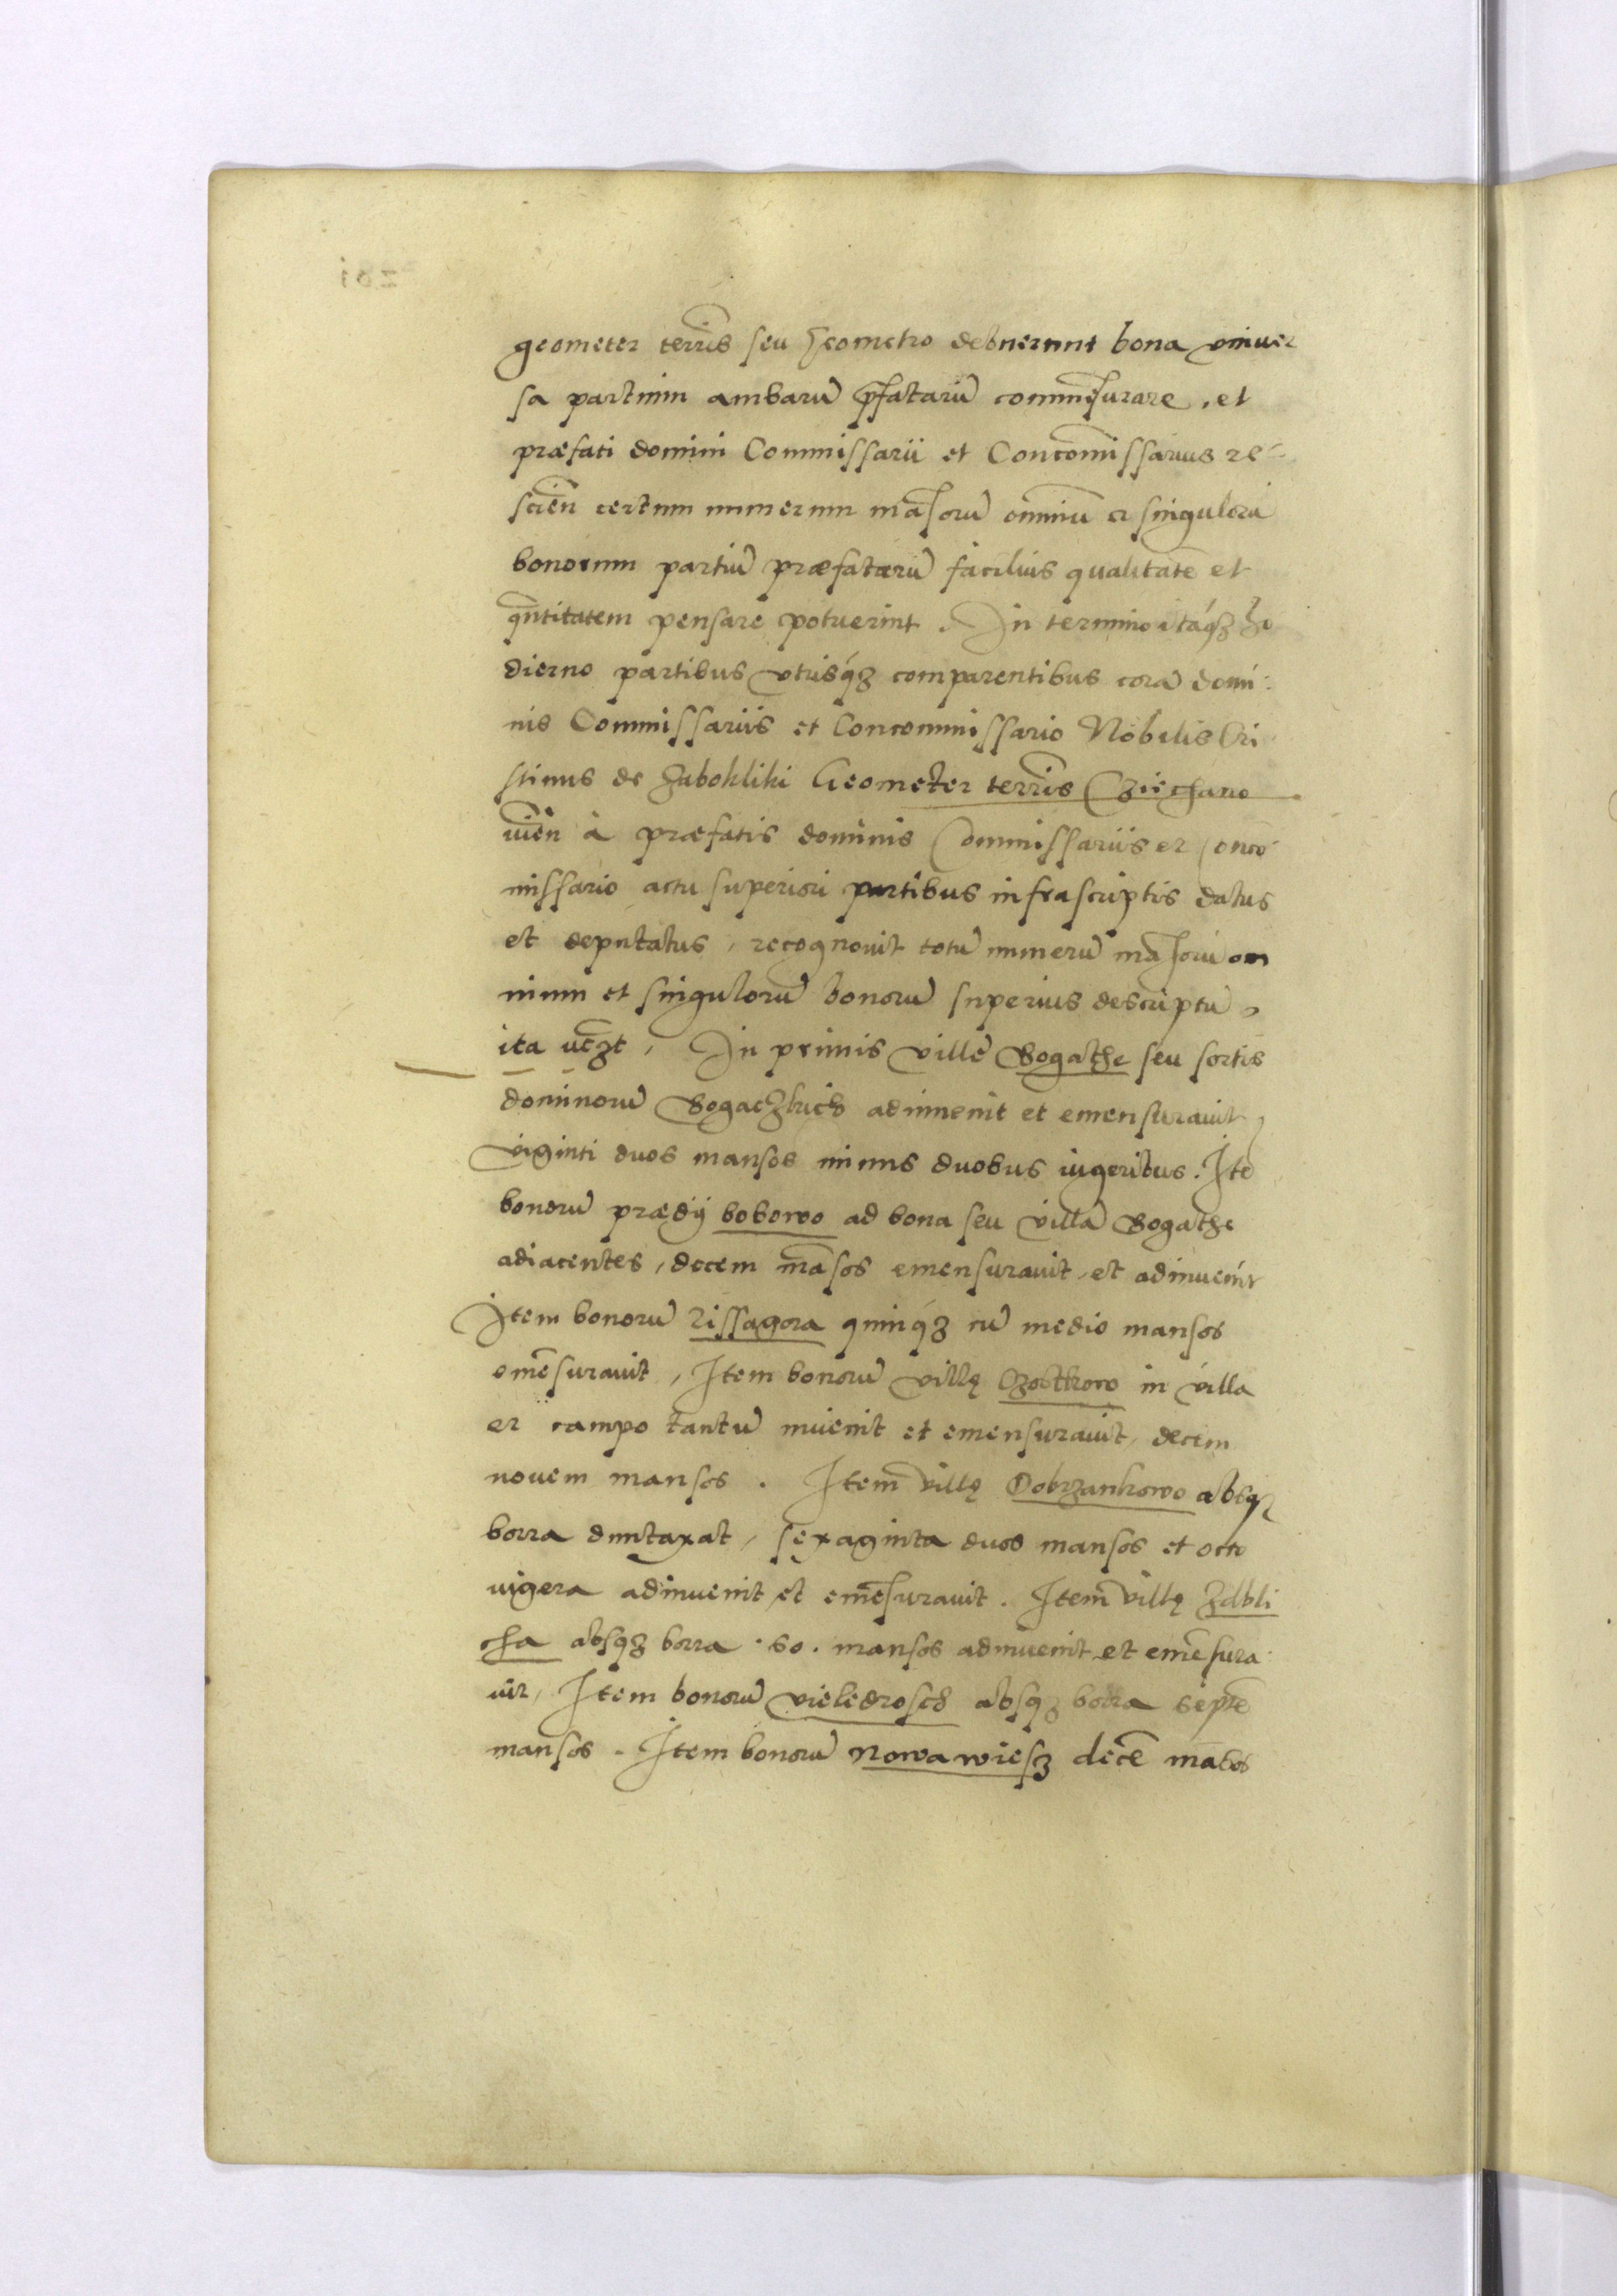 geometer terr̄is seu Geometro debuerunt bona vniuer
sa partium ambarū p̄fatarū commēsurare, et
præfati domini Commissarii et Concom̄issarius re-
scieñ certum numerum māsorū omniū et singulorū
bonorum partiū præfatarū facilius qualitatē et
q̄ntitatem pensare potuerint. In termino itáqꝫ ho
dierno partibus vtrisq́ꝫ comparentibus corā domi:
nis Commissariis et Concommissario Nobilis Cri
stinus de Zabokliki Geometer terr̄is Cziechano
vieñ à præfatis dominis Commissariis et Conco-
missario actu superiori partibus infrascriptis datus
et deputatus, recognouit totū numerū māsorū om
nium et singulorū bonorū superius descriptū,
ita vꝫt, In primis villę Bogathe seu sortis
dominorū Bogaczkich adinuenit et emensurauit,
viginti duos mansos minus duobus iugeribus. Itē
bonorū prædij bobowo ad bona seu villā Bogathe
adiacentes, decem māsos emensurauit, et adinuenit
Item bonorū rissagora quinq́ꝫ cū medio mansos
emēsurauit, Item bonorū villę Czosthkowo in villa
et campo tantū inuenit et emensurauit, decem
nouem mansos. Item villę Dobrzankowo absqꝫ
borra duntaxat, sexaginta duos mansos et octo
iugera adinuenit, et emēsurauit. Item villę Zdbli
cha absqꝫ borra .60. mansos adinuenit et emēsura
uit, Item bonorū vieledrosch absqꝫ borra septē
mansos. Item bonorū nowawiesz decē māsos